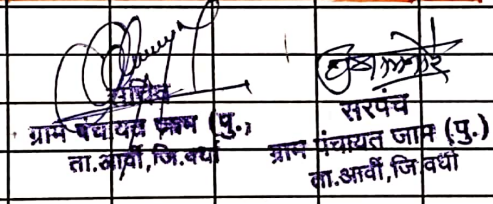 सचिव
ग्राम पंचायत जाम (पु.)
ता.आर्वी,जि.वर्धा
सरपंच
ग्राम पंचायत जाम (पु.)
ता.आर्वी,जि.वर्धा